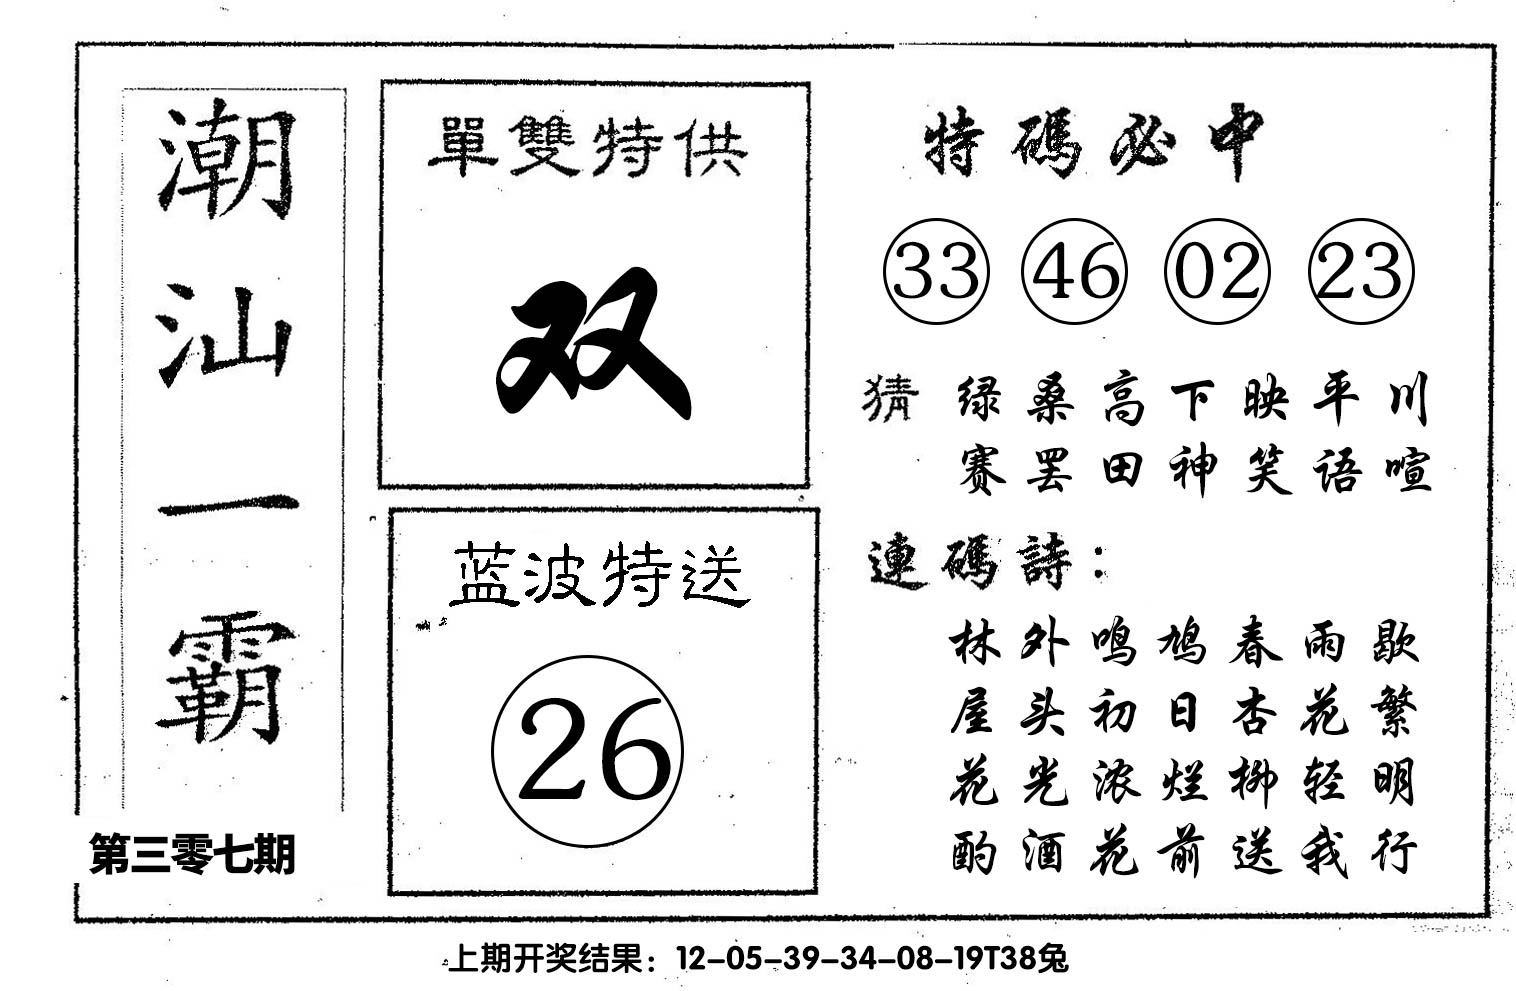 潮汕一霸
第三零七期
單雙特供
双
蓝波特送
26
特碼必中
33 46 02 23
猜 绿桑高下映平川
赛罢田神笑语喧
連碼詩：
林外鸣鸠春雨歇
屋头初日杏花繁
花光浓烂柳轻明
酌酒花前送我行
上期开奖结果：12-05-39-34-08-19T38兔